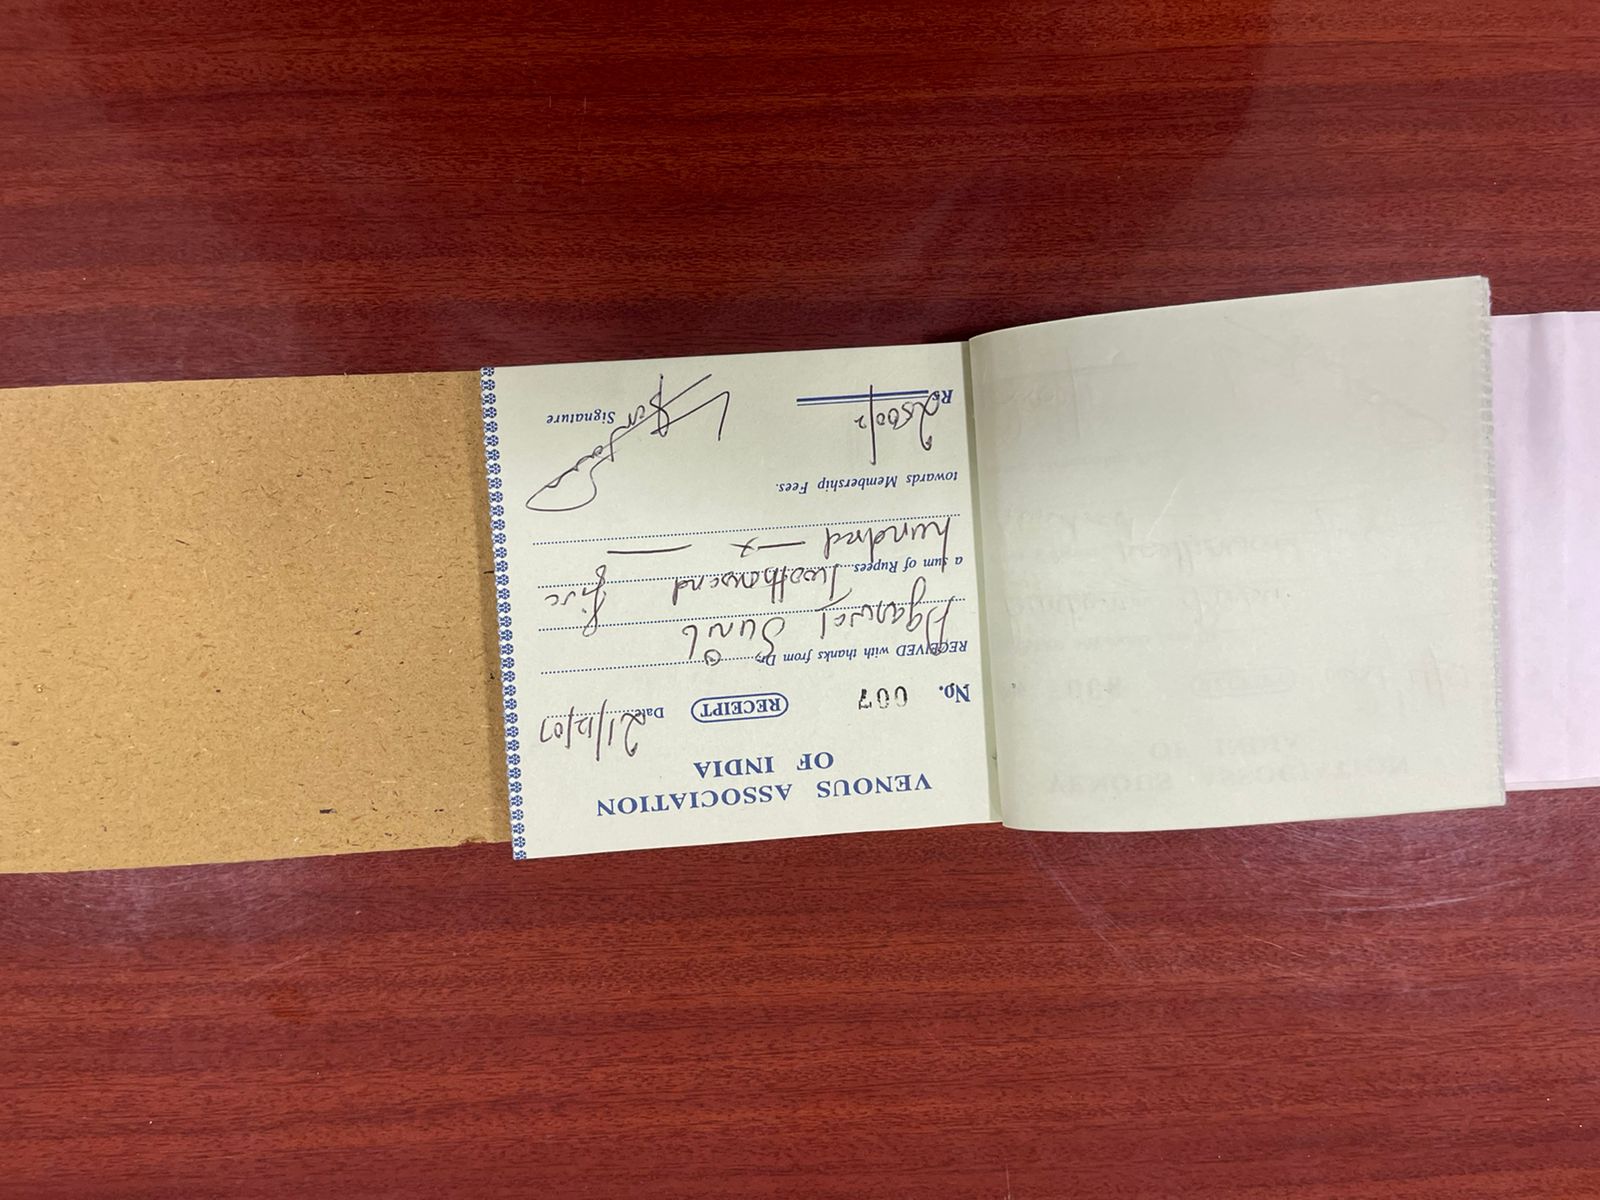 VENOUS ASSOCIATION
OF INDIA
No. 007 RECEIPT Date 21/12/07
RECEIVED with thanks from Dr.
Agarwal Sunil
a sum of Rupees Two thousand five
hundred — x —
towards Membership Fees.
Rs 2500/-
Signature